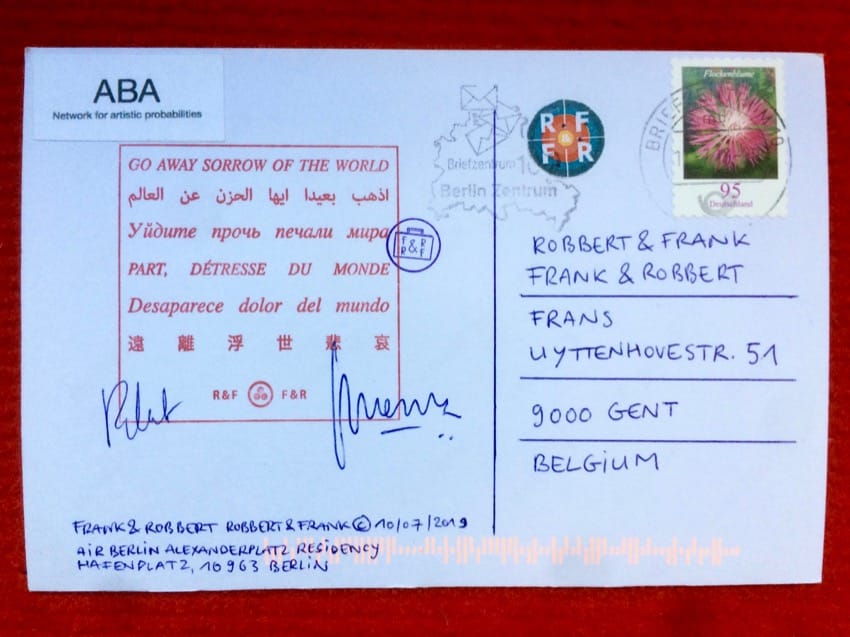 ABA
Network for artistic probabilities
GO AWAY SORROW OF THE WORLD
اذهب بعيدا ايها الحزن عن العالم
Уйдите прочь печали мира
PART, DÉTRESSE DU MONDE
Desaparece dolor del mundo
遠離浮世悲哀
R&F F&R
FRANK & ROBBERT ROBBERT & FRANK © 10/07/2019
AIR BERLIN ALEXANDERPLATZ RESIDENCY
HAFENPLATZ, 10963 BERLIN
F&R
R&F
Briefzentrum 10
Berlin Zentrum
R F
&
F R
Flockenblume
95
Deutschland
ROBBERT & FRANK
FRANK & ROBBERT
FRANS
UYTTENHOVESTR. 51
9000 GENT
BELGIUM